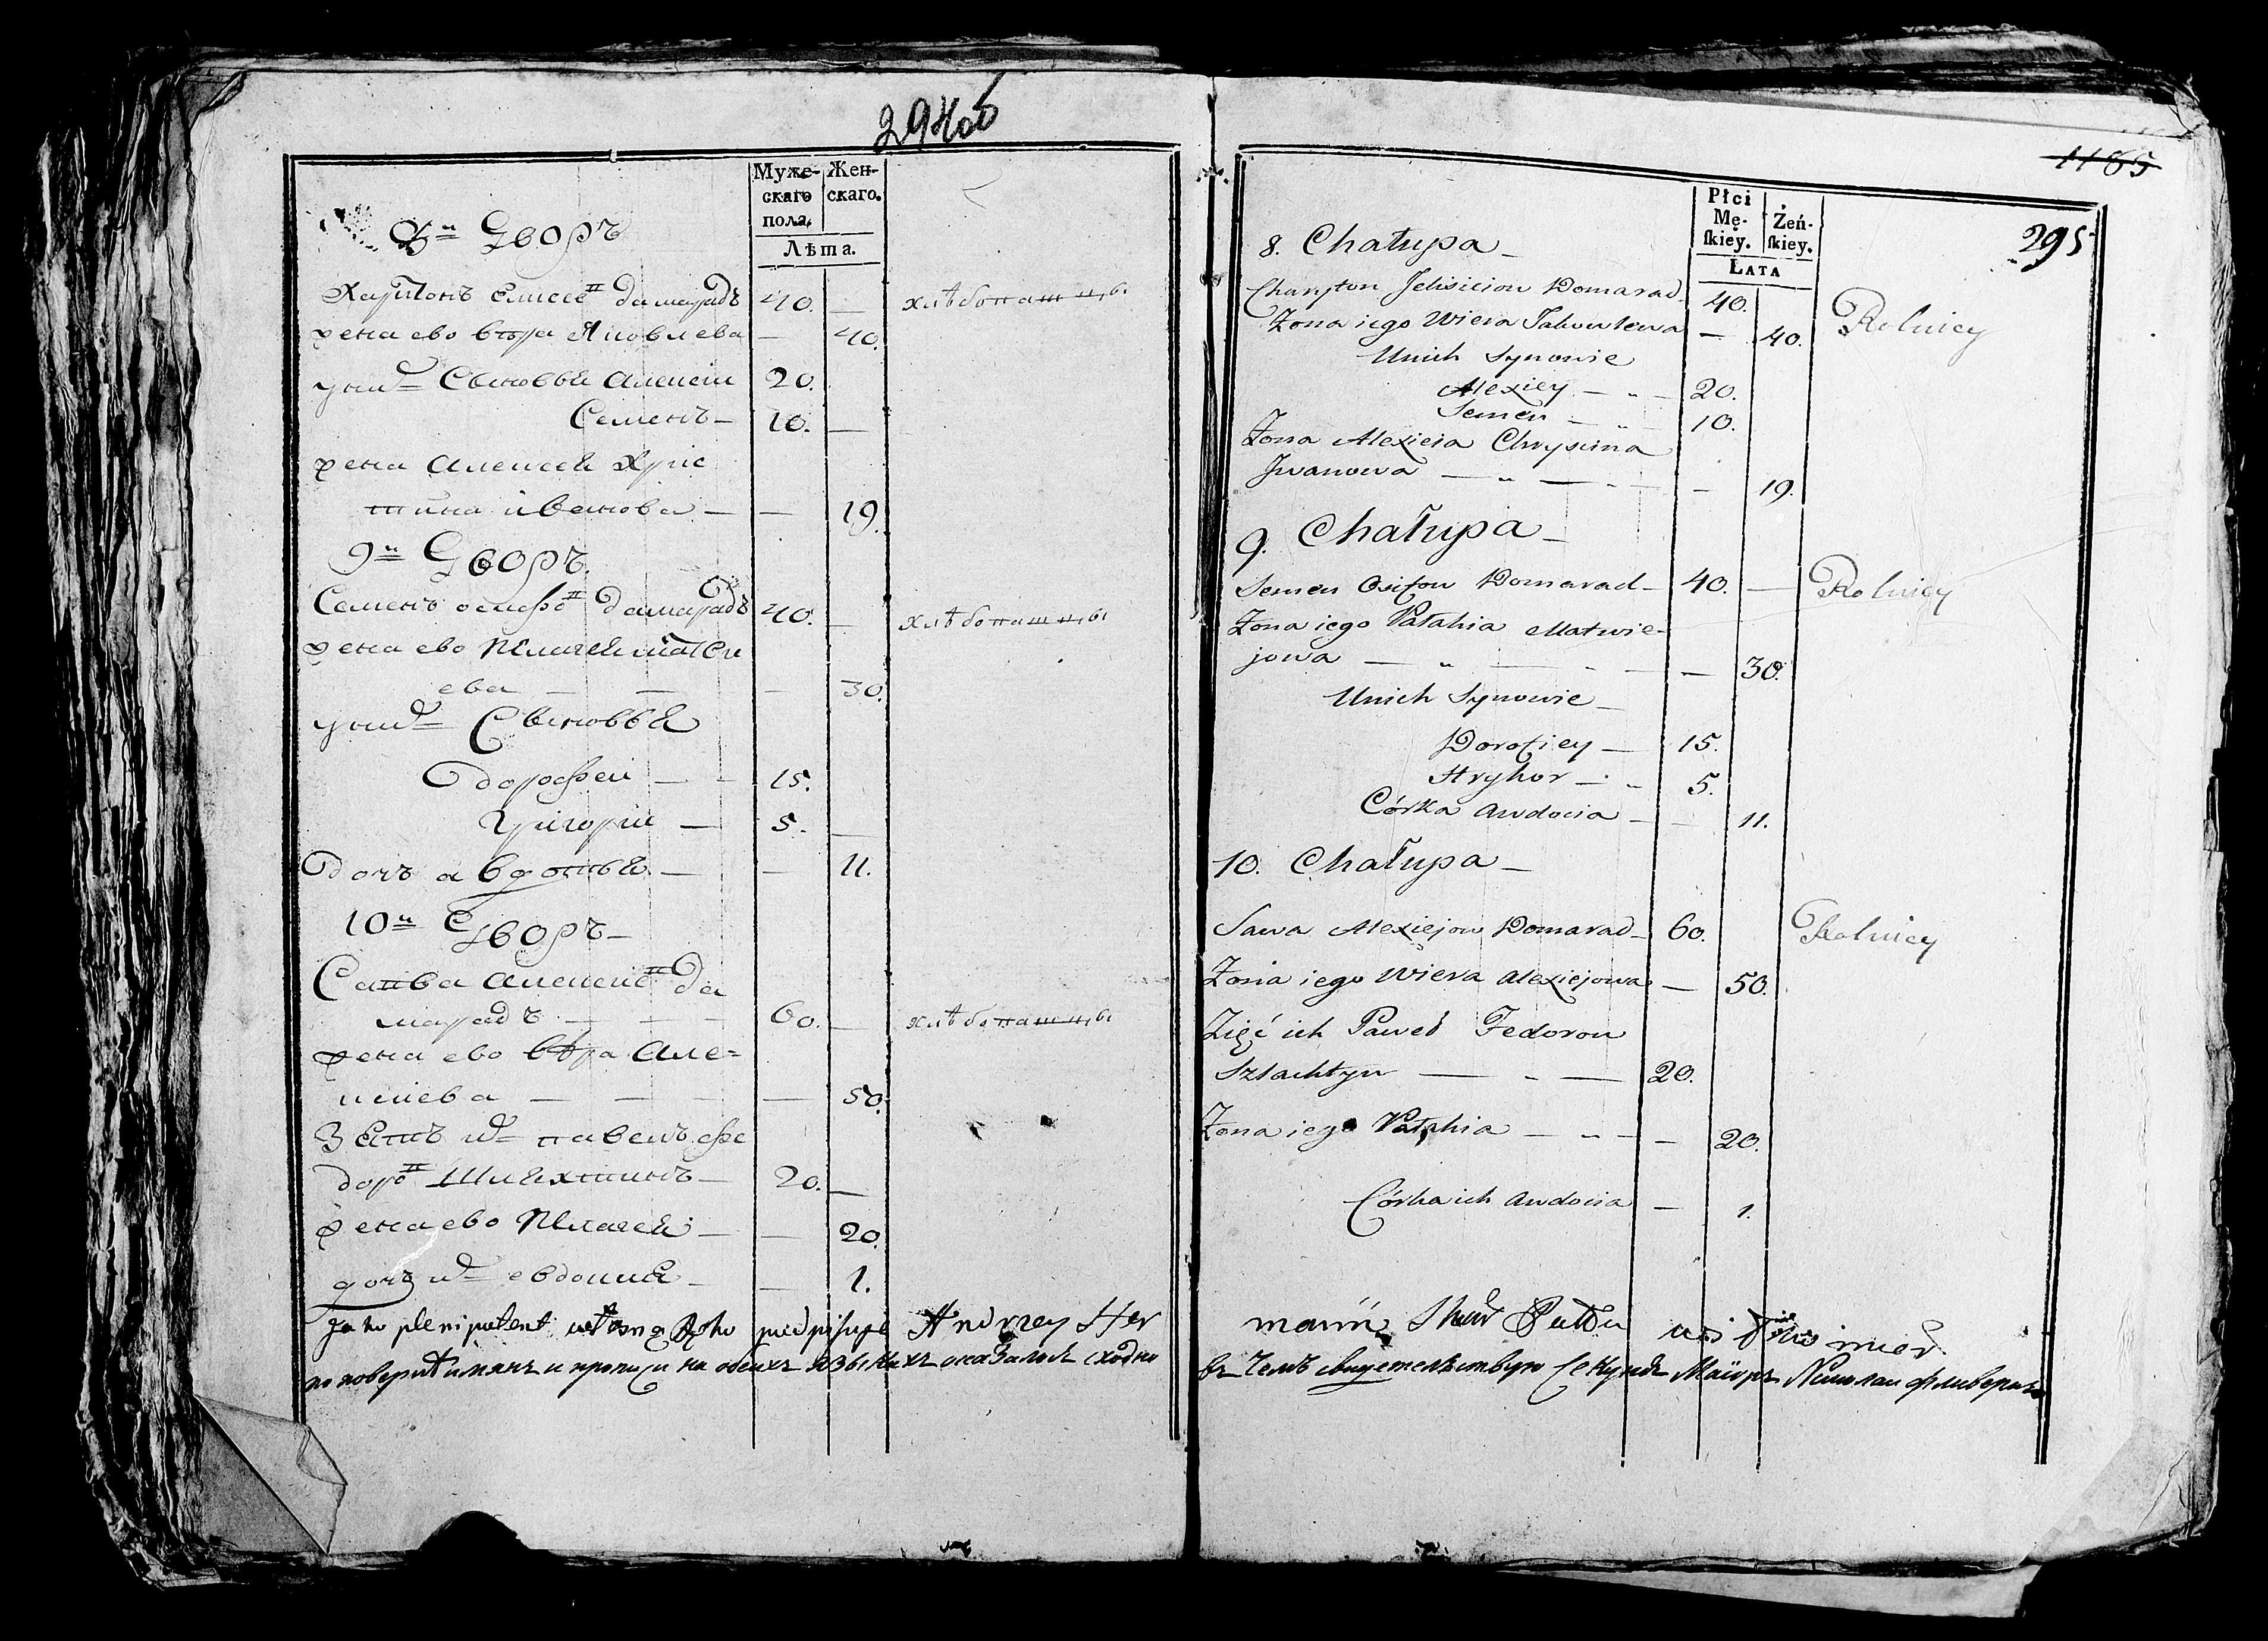 29400
Муже-
скаго
пола.
Жен-
скаго.
Лѣта.
8й Дворъ
Харитонъ Елисеев Дамарадъ 40. — хлѣбопашцы
жена ево Вера Яковлева — 40.
у них Сыновья Алексіи 20.
Семенъ — 10. —
жена Алексея Хрис
тина иванова — — 19.
9й Дворъ
Семенъ осифов Дамарадъ 40. — хлѣбопашцы
жена ево Пелагея матви
ева — — — 30.
у них Сыновья
Дорофеи — — 15.
Григории — 5. —
Дочь авдотья — — 11.
10й Дворъ —
Савва Алексеев Да
марадъ — — — 60. — хлѣбопашцы
жена ево Вѣра Але=
ксиева — — — — 50.
Зеть их павелъ фе
доров Шляхтинъ — 20. —
жена ево Пелагея — — 20.
дочь их евдокия — — 1.
Jako plenipotent podpisuję Andrzey
на обеихъ языкахъ оказалось сходно
1185
295
Płci
Mę-
ſkiey.
Żeń-
ſkiey.
Łata
8. Chałupa —
Charyton Jelisieiow Domarad — 40. Rolnicy
Zona iego Wiera Jakowlewa — 40.
Unich Synowie
Alexiey — „ — 20.
Semen — „ 10.
Zona Alexieia Chrystina
Jwanowa — „ — „ — — 19.
9. Chałupa —
Semen Osifow Domarad — 40. — Rolnicy
Zona iego Pałahia Matwie-
jowa — „ — „ — — 30.
Unich Synowie —
Dorofiey — 15.
Hryhor — „ 5.
Córka Awdocia — — 11.
10. Chałupa —
Sawa Alexiejow Domarad — 60. Rolnicy
Zona iego Wiera Alexiejowa — 50.
Zięć ich Paweł Fedorow
Szlachtyn — „ — 20.
Zona iego Pałahia — „ — — 20.
Córka ich Awdocia — 1.
въ чемъ свидетельствую Секундъ Маіоръ Николаи